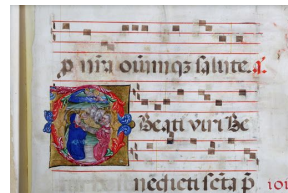 p nr̃a oĩniũqз salute. a.
Beati viri Be
nedicti sc̃ta p̃
101